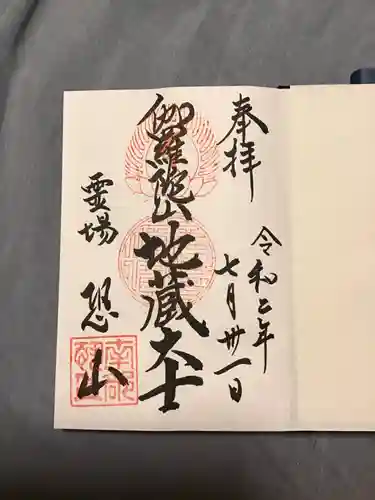 奉拝
令和二年
七月卅一日
伽羅陀山地蔵大士
霊場
恐山